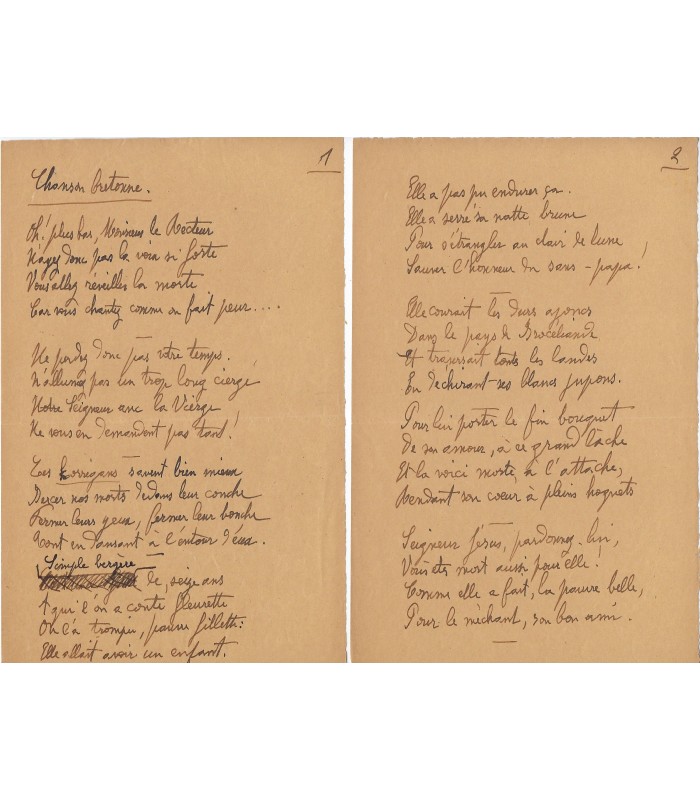 1
Chanson bretonne.
Oh! plus bas, Monsieur le Recteur
N'ayez donc pas la voix si forte
Vous allez réveiller la morte
Car vous chantez comme on fait peur....
Ne perdez donc pas votre temps.
N'allumez pas un trop long cierge
Notre Seigneur avec la Vierge
Ne vous en demandent pas tant!
Les Korrigans savent bien mieux
Bercer nos morts dedans leur couche
Fermer leurs yeux, fermer leur bouche
Tout en dansant à l'entour d'eux.
Simple bergère
de seize ans
A qui l'on a conté fleurette
On l'a trompée, pauvre fillette:
Elle allait avoir un enfant.
2
Elle a pas pu endurer ça.
Elle a serré sa natte brune
Pour s'étrangler au clair de lune
Sauver l'honneur du sans-papa!
Elle courait les durs ajoncs
Dans le pays de Brocéliande
Et traversait toutes les landes
En déchirant ses blancs jupons.
Pour lui porter le fin bouquet
De son amour, à ce grand lâche
Et la voici morte à l'attache,
Rendant son coeur à pleins hoquets
Seigneur Jésus, pardonnez-lui,
Vous êtes mort aussi pour elle!
Comme elle a fait, la pauvre belle,
Pour le méchant, son bon ami.